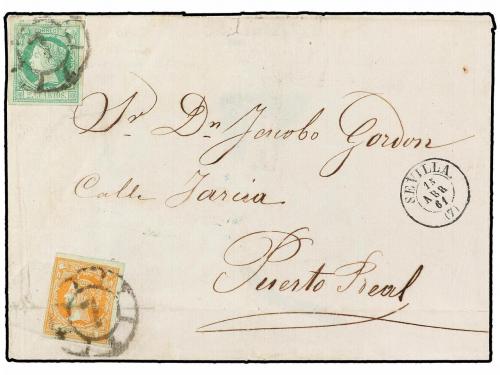 CORREOS
CUARTOS
Sr Dn Jacobo Gordon
SEVILLA.
15
ABR
61
(7)
Calle Jarcia
Puerto Real